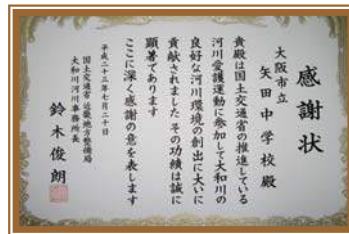 感謝状
大阪市立
矢田中学校殿
貴殿は国土交通省の推進している
河川愛護運動に参加して大和川の
良好な河川環境の創出に大いに
貢献されました その功績は誠に
顕著であります
ここに深く感謝の意を表します
平成二十三年七月二十日
国土交通省 近畿地方整備局
大和川河川事務所長
鈴木俊朗